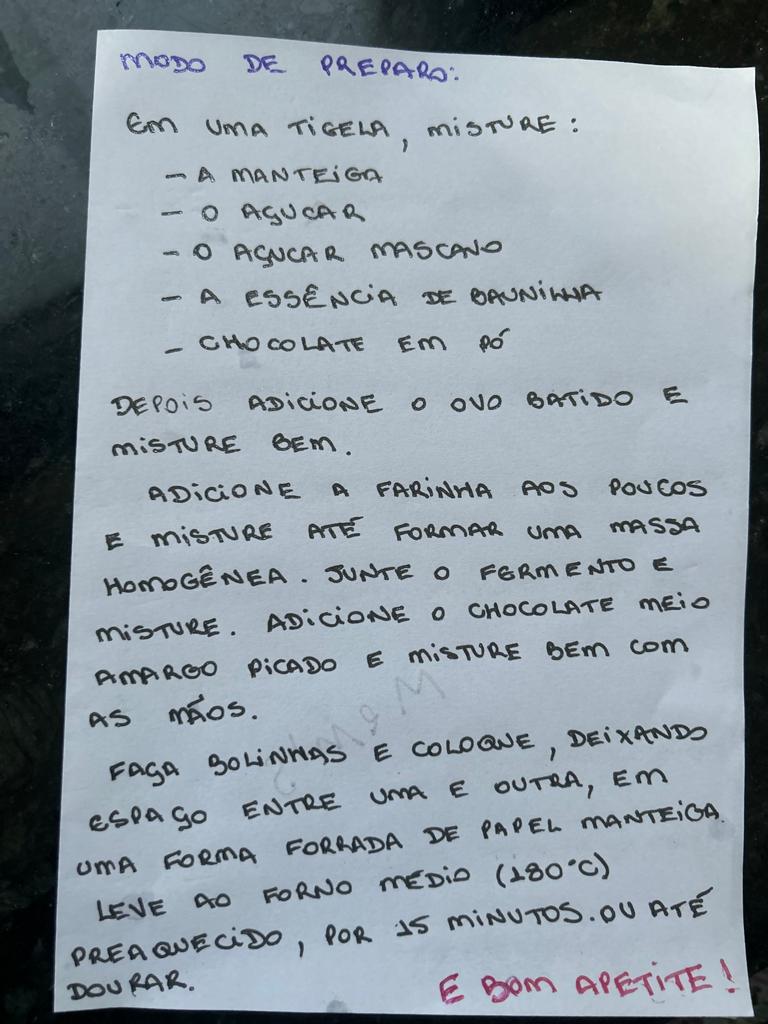 MODO DE PREPARO:
EM UMA TIGELA, MISTURE:
- A MANTEIGA
- O AÇUCAR
- O AÇUCAR MASCAVO
- A ESSÊNCIA DE BAUNILHA
- CHOCOLATE EM PÓ
DEPOIS ADICIONE O OVO BATIDO E
MISTURE BEM.
ADICIONE A FARINHA AOS POUCOS
E MISTURE ATÉ FORMAR UMA MASSA
HOMOGÊNEA. JUNTE O FERMENTO E
MISTURE. ADICIONE O CHOCOLATE MEIO
AMARGO PICADO E MISTURE BEM COM
AS MÃOS.
FAÇA BOLINHAS E COLOQUE, DEIXANDO
ESPAÇO ENTRE UMA E OUTRA, EM
UMA FORMA FORRADA DE PAPEL MANTEIGA.
LEVE AO FORNO MÉDIO (180°C)
PREAQUECIDO, POR 15 MINUTOS. OU ATÉ
DOURAR.
E BOM APETITE!